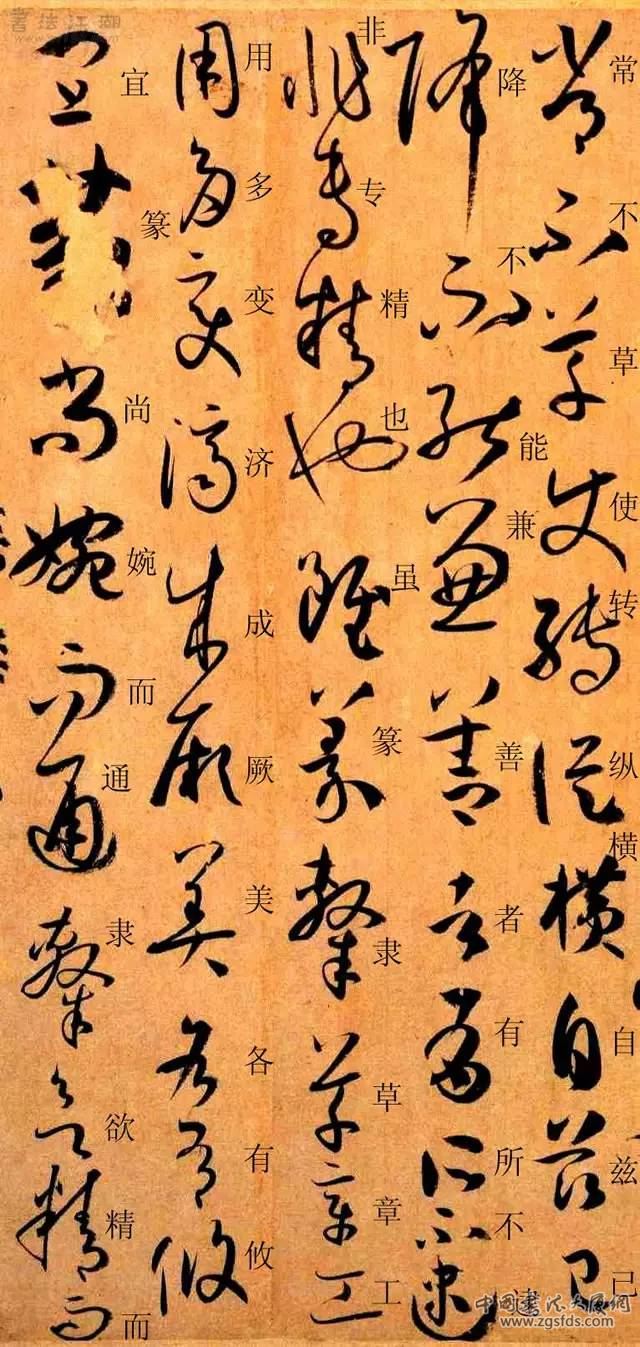 常不草使转纵横自兹己
降不能兼善者有所不逮
非专精也虽篆隶草章工
用多变济成厥美各有攸
宜篆尚婉而通隶欲精而
書法江湖
www.zgsfds.com